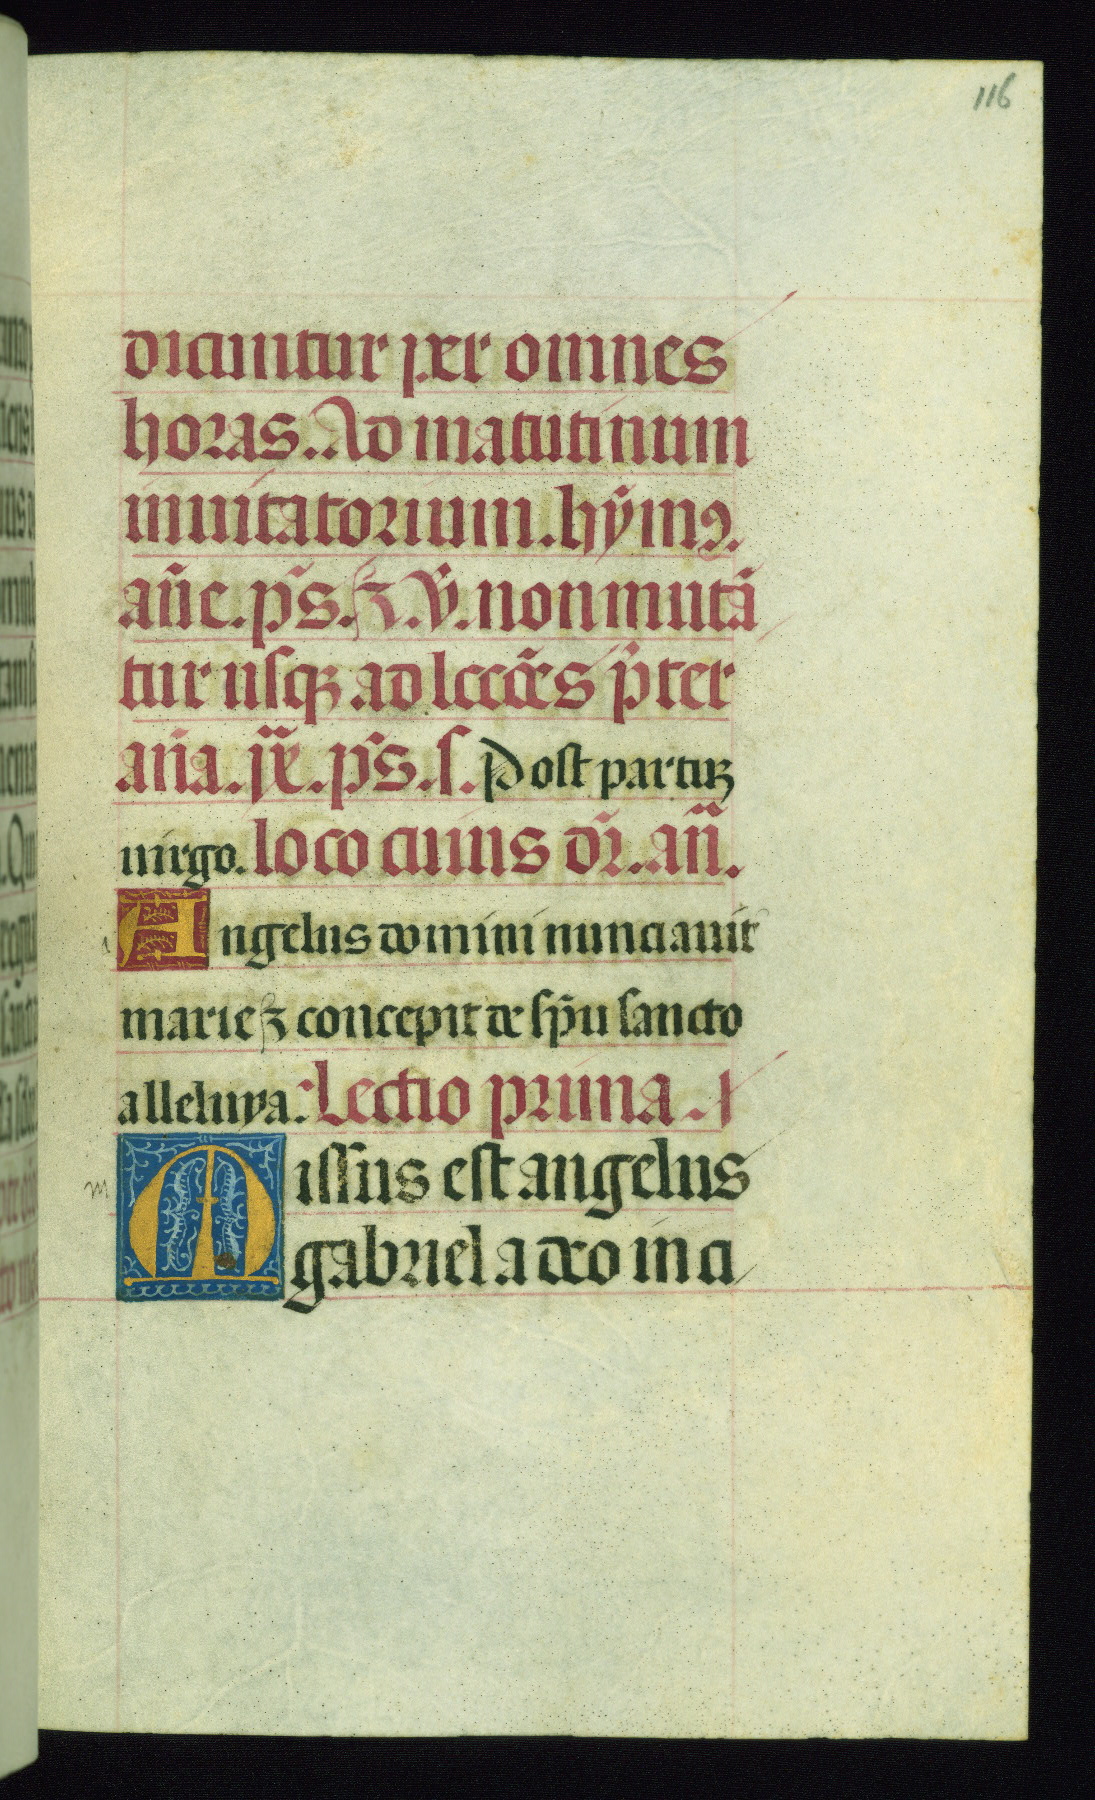 116
dicuntur per omnes
horas. Ad matutinum
inuitatorium. hỹmꝰ.
añe. p̃s. ⁊. ỹ. non mutã
tur usqꝫ ad lecc̃es p̃ter
añã. ix̃. p̃s. s. Post partuꝫ
uirgo. loco cuius dr̃. añ.
Angelus domini nunciauit
marie ⁊ concepit de sp̃u sancto
alleluya. Lectio prima.
m
Missus est angelus
gabriel a deo in ci